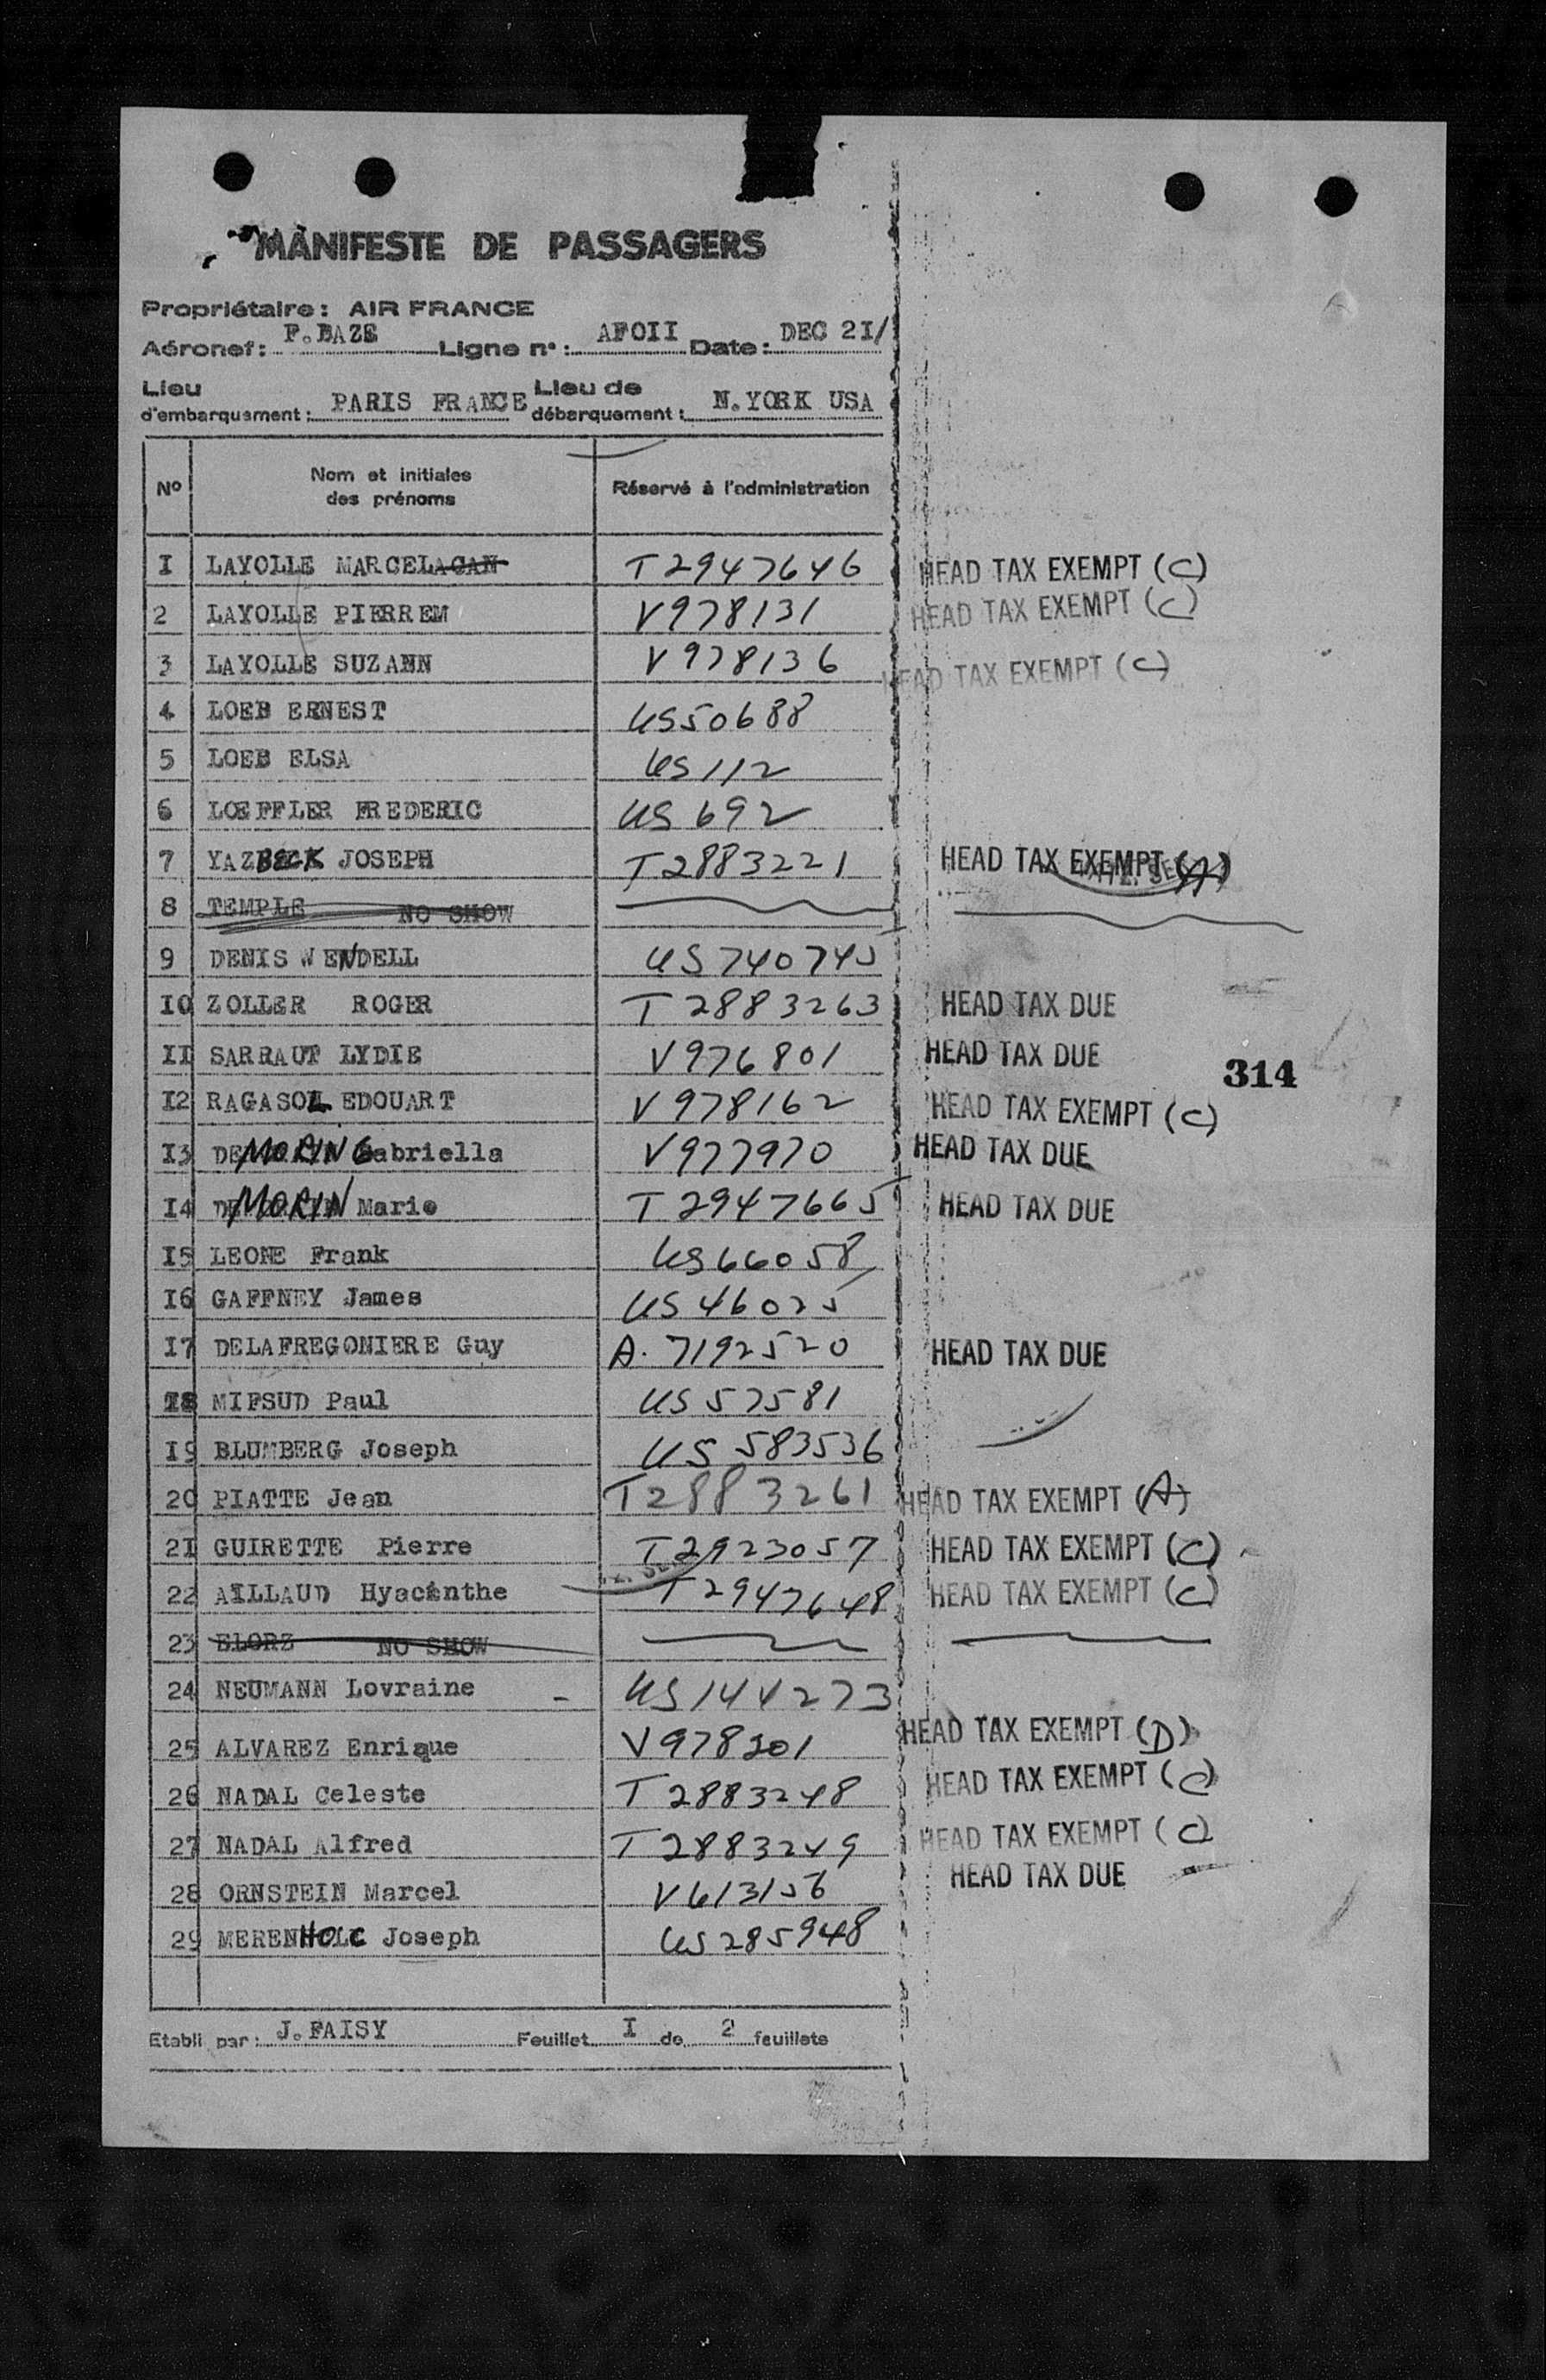 MANIFESTE DE PASSAGERS
Propriétaire : AIR FRANCE
Aéronef : F.BAZS Ligne n° : AFOII Date : DEC 2I/
Lieu d'embarquement : PARIS FRANCE Lieu de débarquement : N.YORK USA
N° Nom et initiales des prénoms Réservé à l'administration
I LAYOLLE MARCELACAN T2947646 HEAD TAX EXEMPT (C)
2 LAYOLLE PIERREM V978131 HEAD TAX EXEMPT (C)
3 LAYOLLE SUZANN V978136 HEAD TAX EXEMPT (C)
4 LOEB ERNEST US50688
5 LOEB ELSA US112
6 LOEFFLER FREDERIC US 692
7 YAZBECK JOSEPH T2883221 HEAD TAX EXEMPT (A)
8 TEMPLE NO SHOW
9 DENIS WENDELL US740745
IO ZOLLER ROGER T 2883263 HEAD TAX DUE
II SARRAUT LYDIE V976801 HEAD TAX DUE
314
I2 RAGASOL EDOUART V978162 HEAD TAX EXEMPT (C)
I3 DE MORIN Gabriella V977970 HEAD TAX DUE
I4 DE MORIN Marie T 2947665 HEAD TAX DUE
I5 LEONE Frank US66058
I6 GAFFNEY James US46025
I7 DELAFREGONIERE Guy A. 7192520 HEAD TAX DUE
I8 MIFSUD Paul US57581
I9 BLUMBERG Joseph US 583536
20 PIATTE Jean T2883261 HEAD TAX EXEMPT (A)
2I GUIRETTE Pierre T2923057 HEAD TAX EXEMPT (C)
22 AILLAUD Hyacinthe T2947648 HEAD TAX EXEMPT (C)
23 ELORZ NO SHOW
24 NEUMANN Lovraine - US144273
25 ALVAREZ Enrique V978201 HEAD TAX EXEMPT (D)
26 NADAL Celeste T 2883248 HEAD TAX EXEMPT (C)
27 NADAL Alfred T 2883249 HEAD TAX EXEMPT (C)
28 ORNSTEIN Marcel V613156 HEAD TAX DUE
29 MERENHOLC Joseph US285948
Etabli par : J.FAISY Feuillet I de 2 feuillets